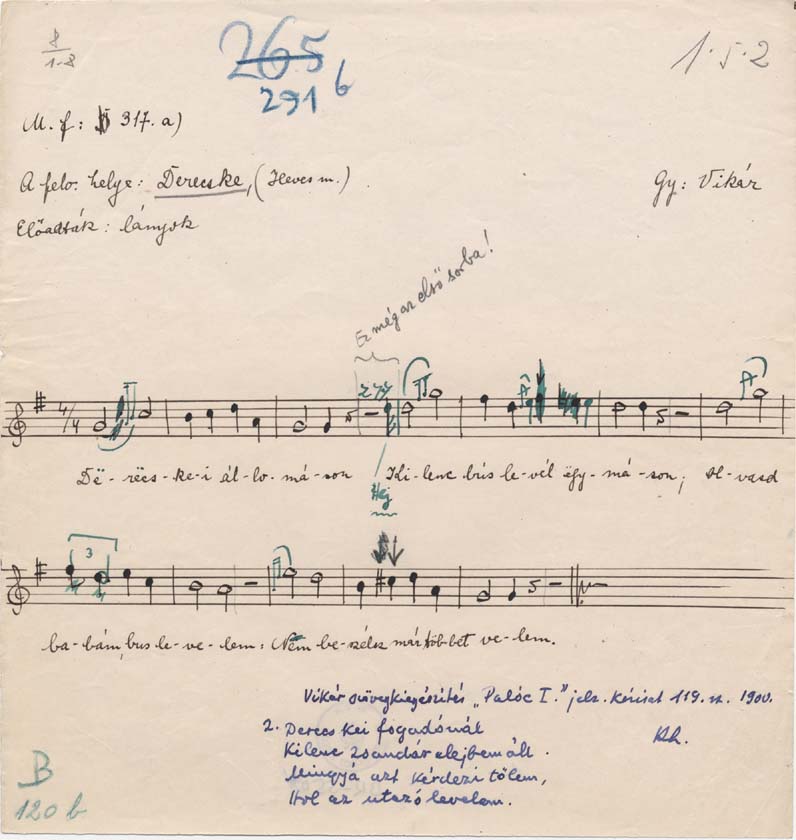 8
1-8
265
291 b
1.5.2
M. f: 317. a)
A felv. helye: Derecske, (Heves m.)
Gy: Vikár
Előadták: lányok
Ez még az első sorba!
4/4
Dë-rëcs-ke-i ál-lo-má-son Ki-lenc bús le-vél ëgy-má-son; Ol-vasd
Hej
3
ba-bám, bus le-ve-lem: Nem be-szélsz már töb-bet ve-lem.
Vikár szövegkiegészítés „Palóc I." jelz. kézirat 119. sz. 1900.
2. Derecskei fogadónál
Kilenc zsandár elejbem áll.
Mingyá azt kérdezi tőlem,
Hol az utazó levelem.
B
120 b